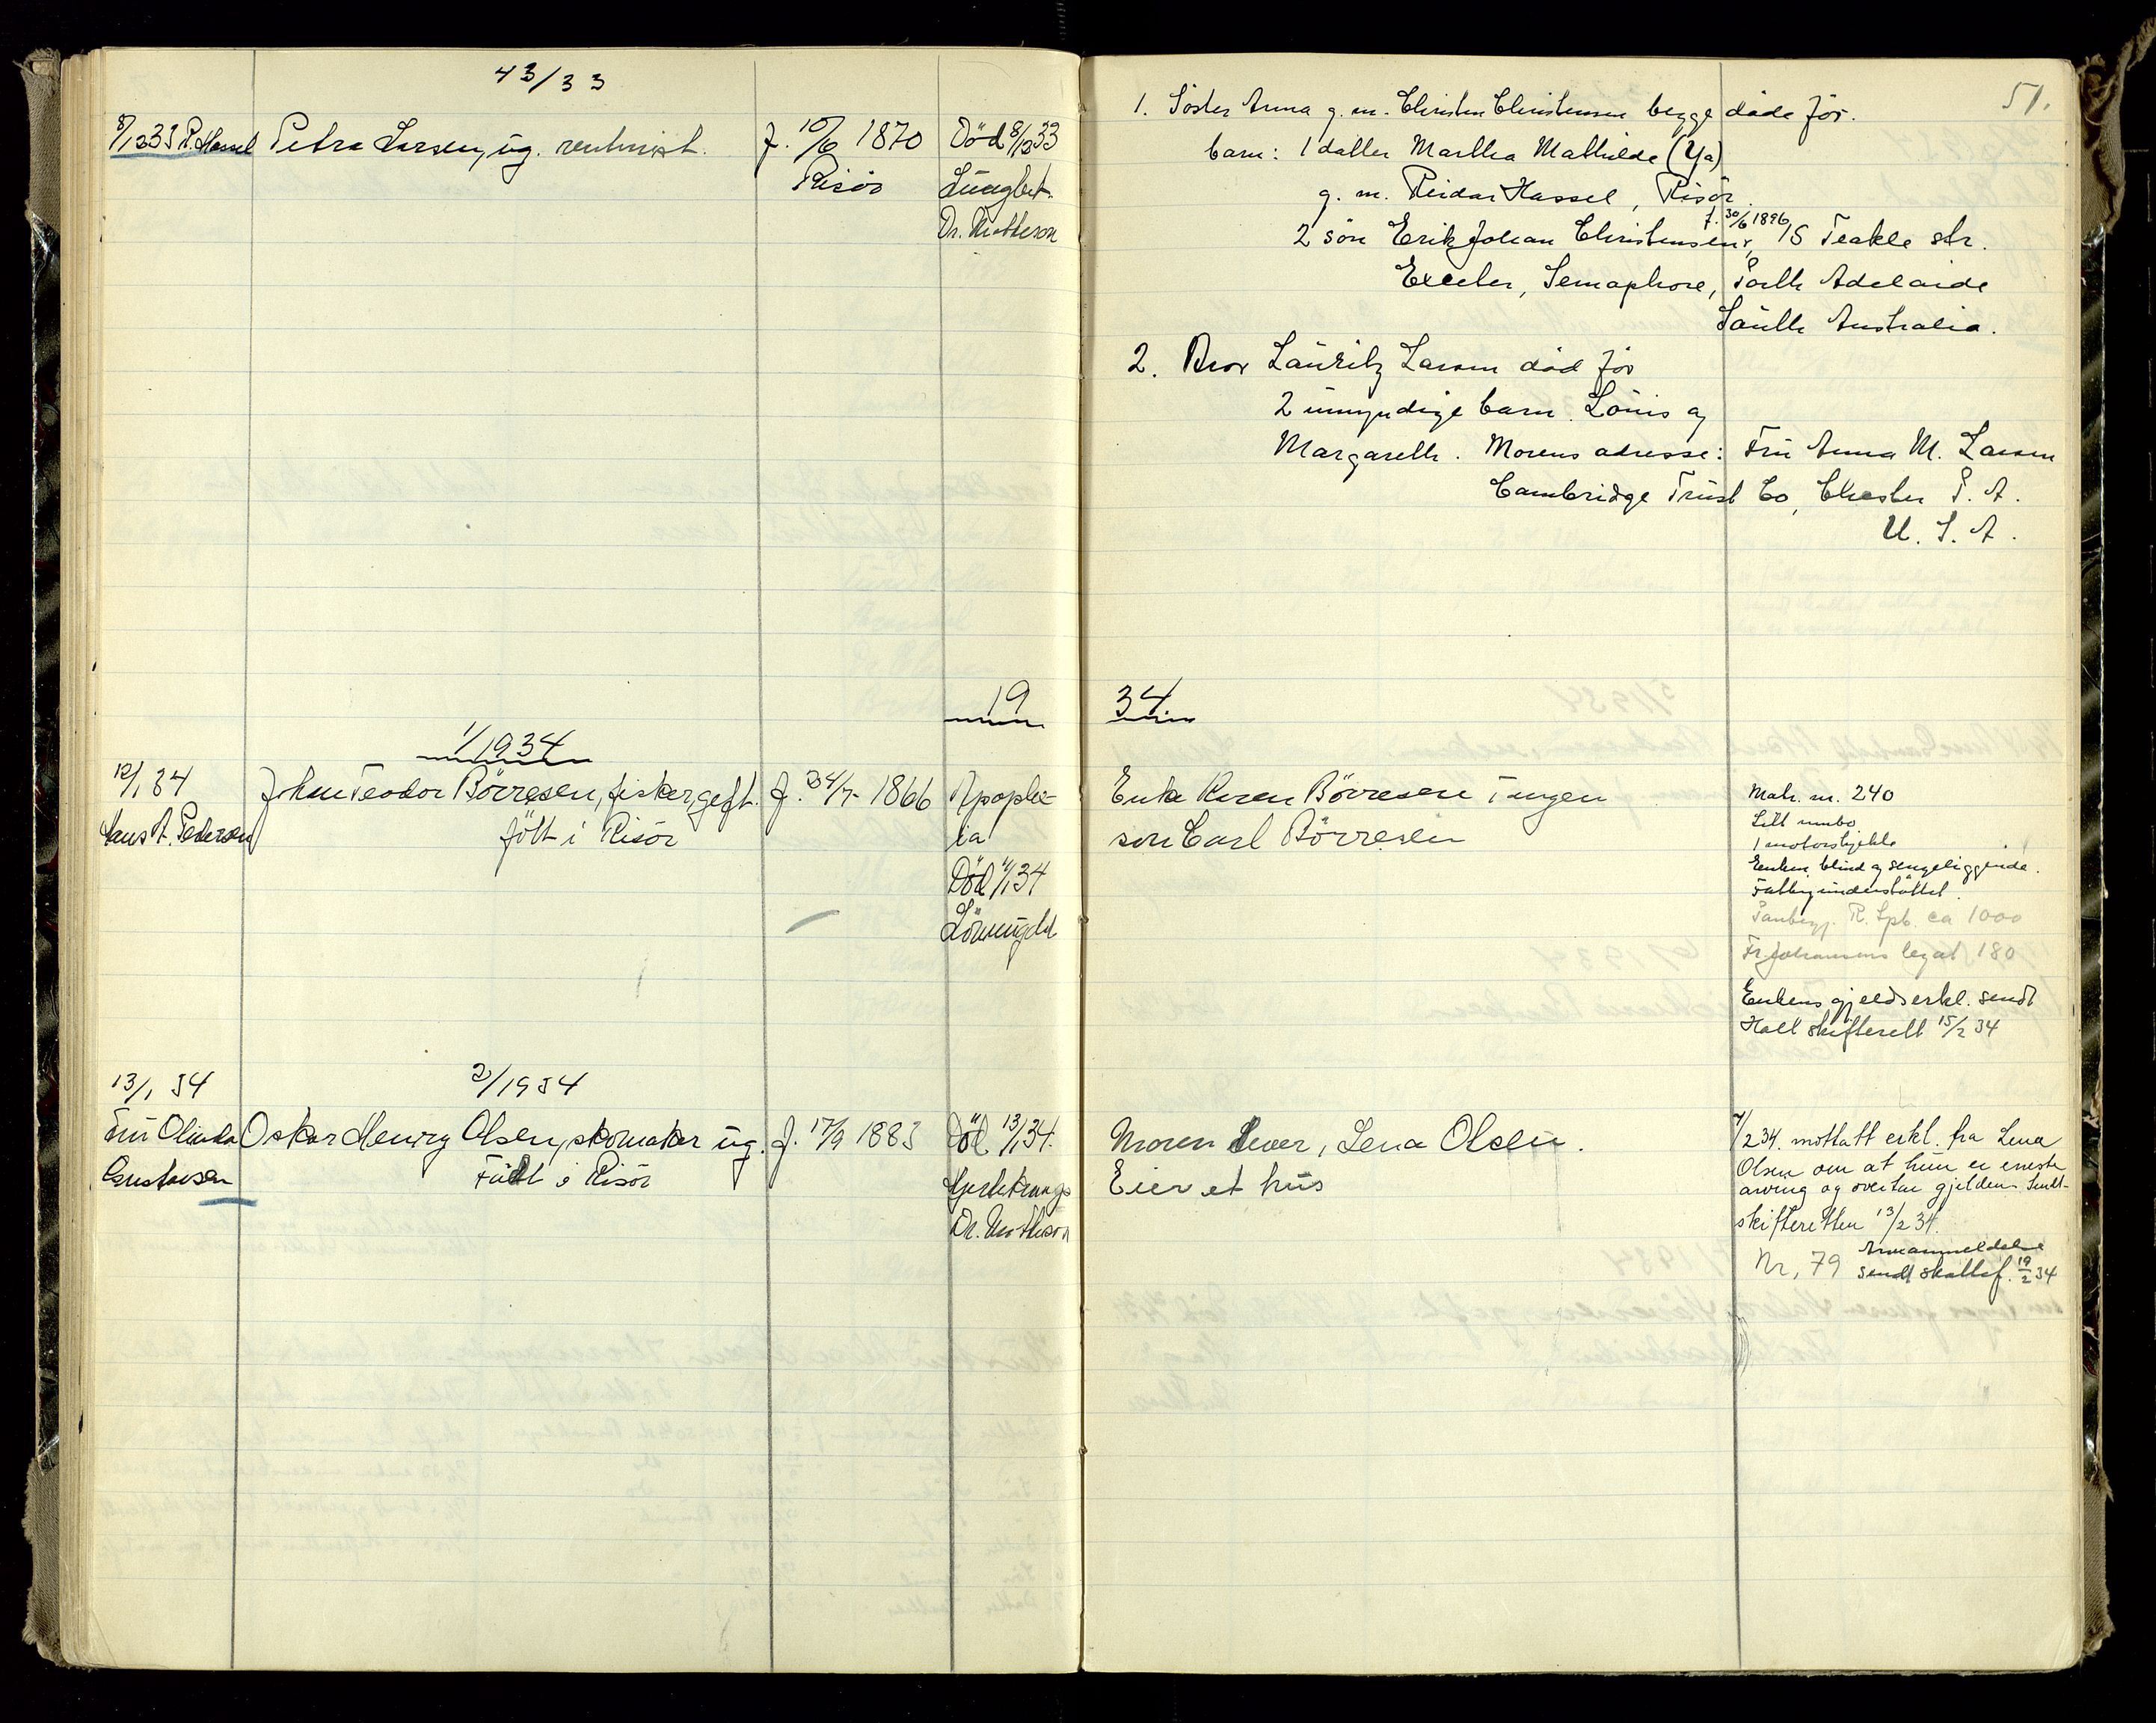 43/33
8/12 33 R. Hassel Petra Larsen, ug. rentenist. f. 10/6 1870 Död 8/12 33
Risör Lungbet.
Dr. Matheson
51.
1. Söster Anna g. m. Christen Christensen begge döde för.
barn: 1 datter Martha Mathilde (Ya)
g. m. Reidar Hassel, Risör.
f. 30/6 1896
2 sön Erik Johan Christensen, 15 Teakle str.
Exeter, Semaphore, Porth Adelaide
South Australia.
2. Bror Lauritz Larsen död för
2 umyndige barn. Louis og
Margareth. Morens adresse: Fru Anna M. Larsen
Cambridge Trust Co, Chester P. A.
U. S. A.
19 34
1/1934
12/1 34 Johan Teodor Börresen, fisker, gift. f. 24/7 1866 Apople-
Hans A. Pedersen fött i Risör xia
Död 11/1 34
Enke Karen Börresen Tangen
son Carl Börresen
Matr. nr. 240
Litt innbo
1 motorsjekte
Enken blind og sengeliggende.
Fattigunderstöttet.
R. Spb. ca 1000
Fr. Johansens legat 180
Enkens gjeldserkl. sendt
Holt skifterett 15/2 34
13/1 34 2/1934
Fru Olinda Oskar Henry Olsen, skomaker ug. f. 17/9 1883 Död 13/1 34.
Gustavsen Födt i Risör Hjerte
Dr. Mathison
Moren lever, Lena Olsen.
Eier et hus
7/2 34. mottatt erkl. fra Lena
Olsen om at hun er eneste
arving og overtar gjelden. Sendt
skifteretten 13/2 34.
Nr. 79 Arveanmeldelse
sendt skattef. 19/2 34